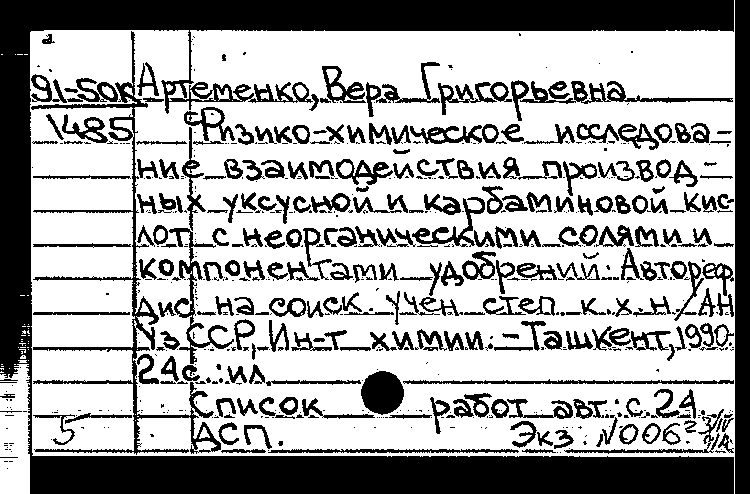 91-50к Артеменко, Вера Григорьевна.
1485 Физико-химическое исследова-
ние взаимодействия производ-
ных уксусной и карбаминовой кис-
лот с неорганическими солями и
компонентами удобрений: Автореф.
дис. на соиск. учен. степ. к.х.н./АН
УзССР, Ин-т химии. - Ташкент, 1990.
24с.: ил.
Список работ авт.: с. 24.
5 ДСП. Экз. N006